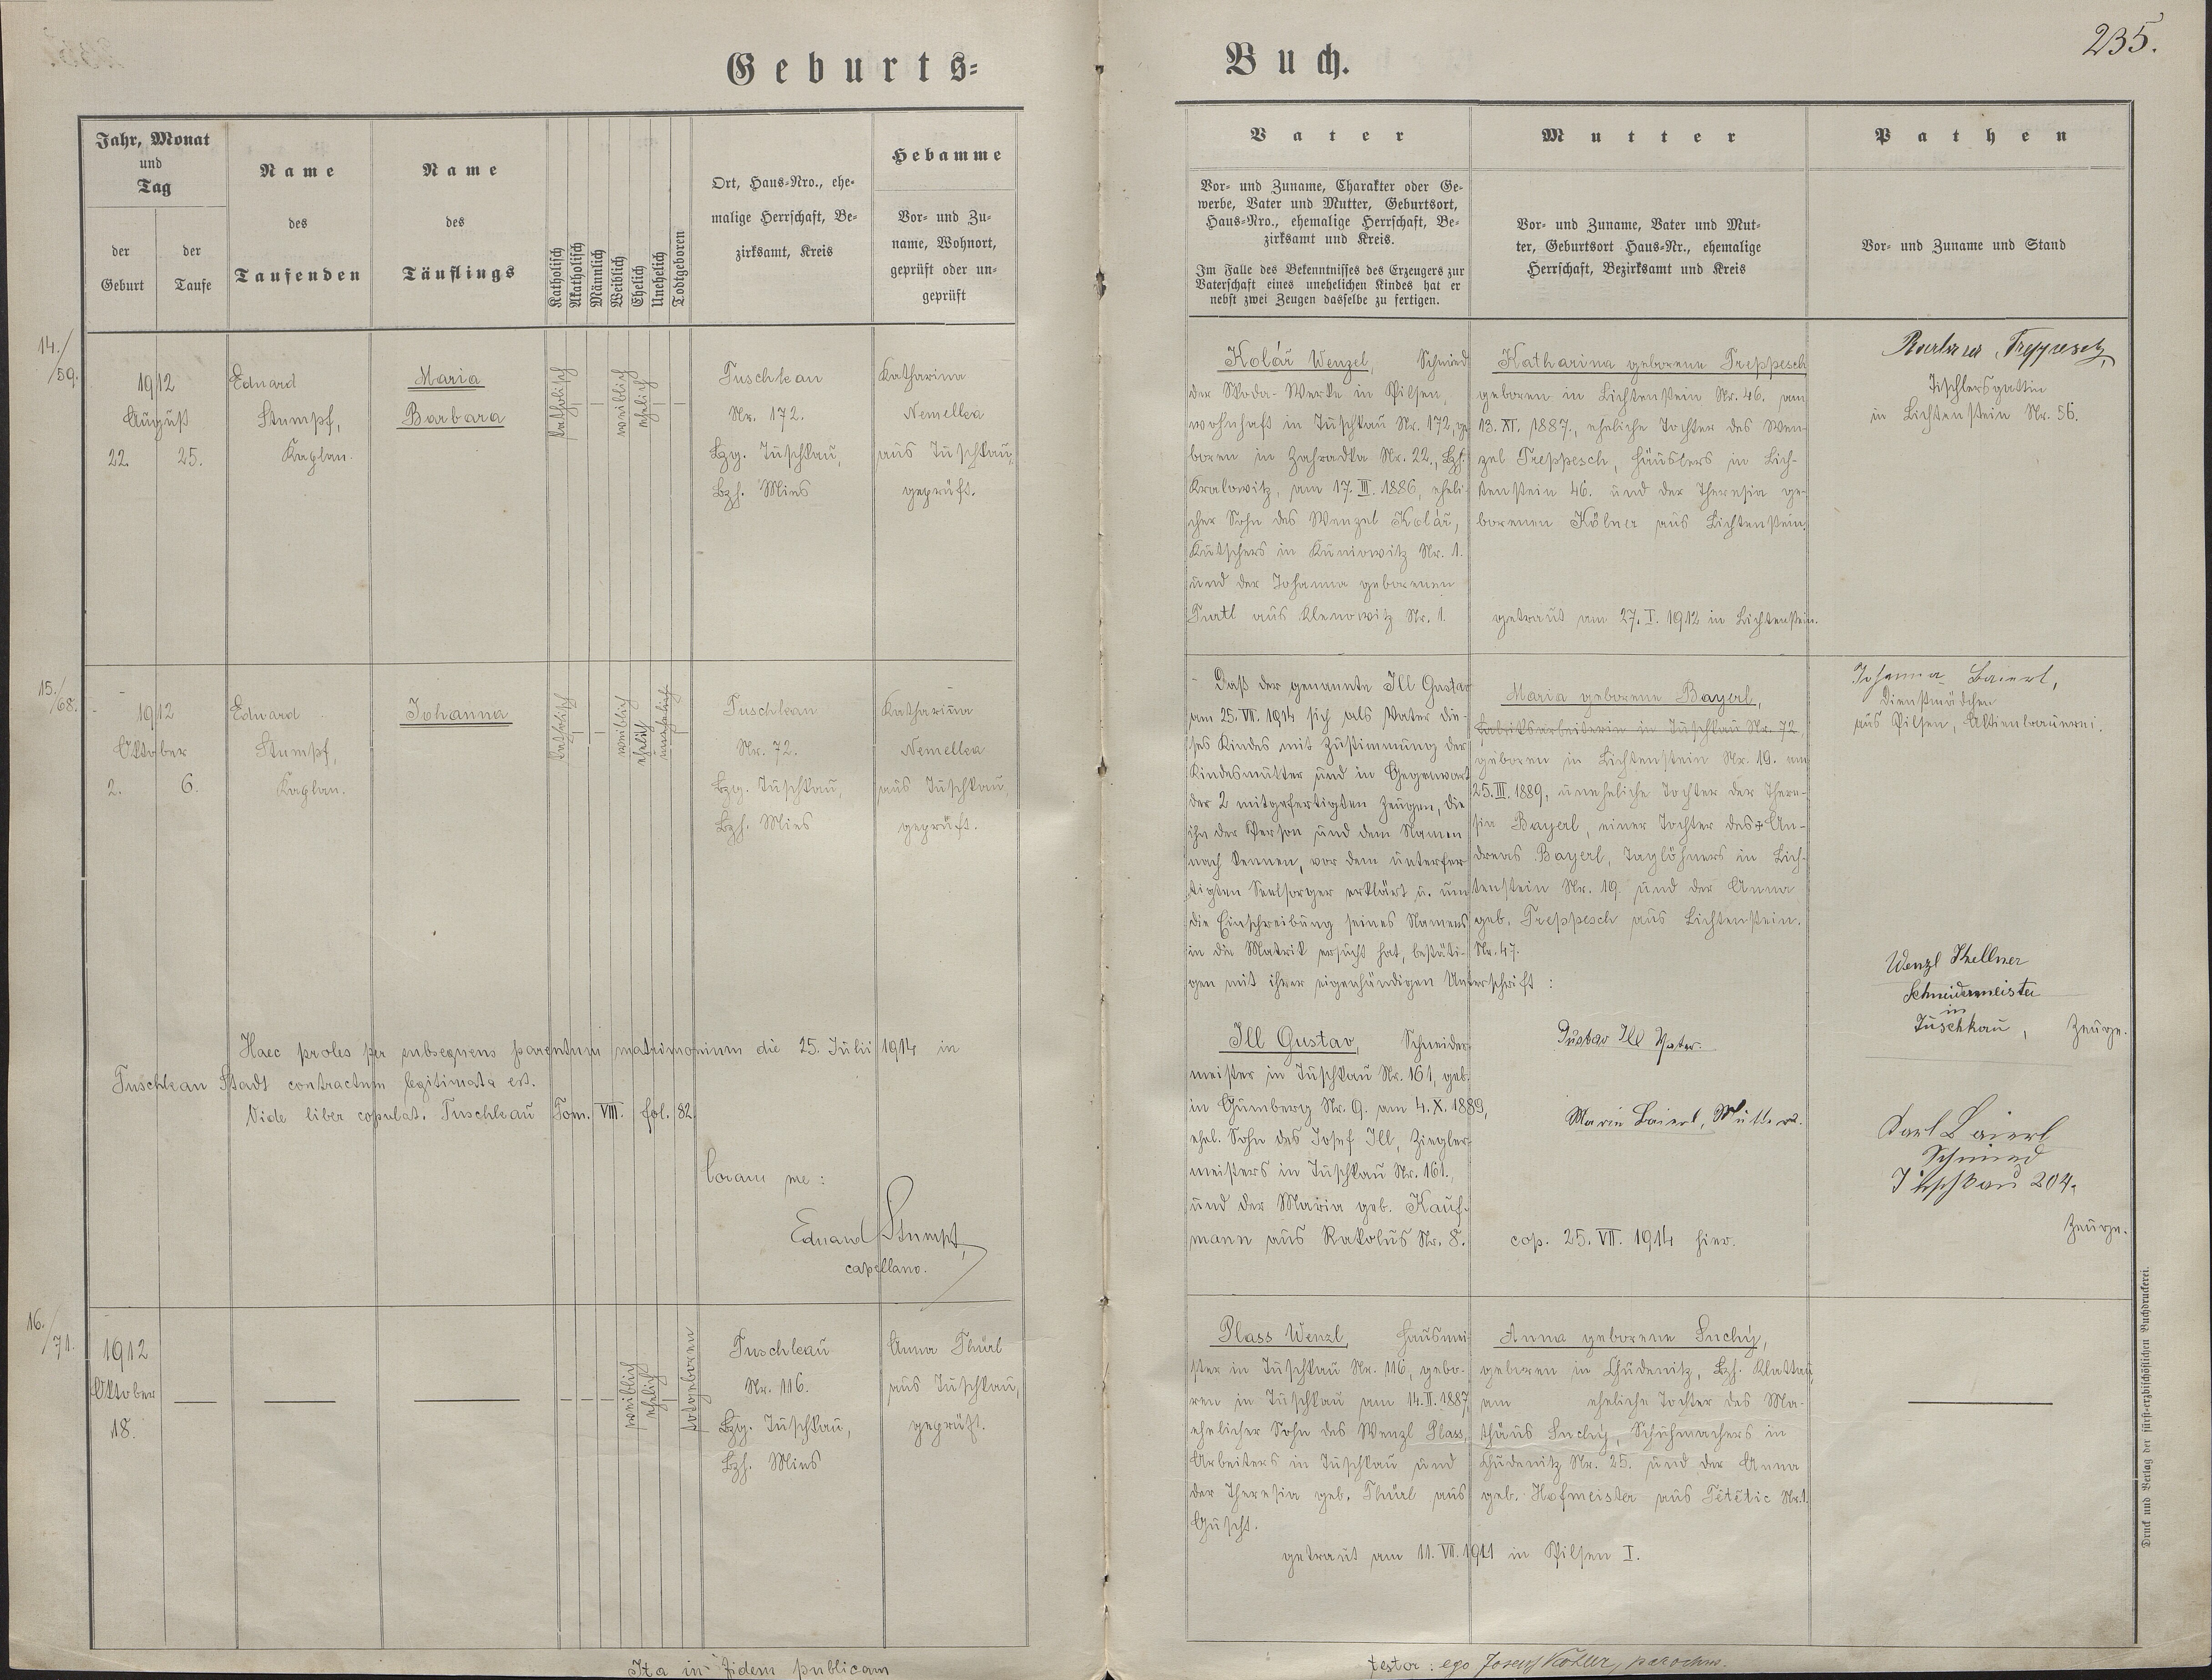 Geburts=
Buch.
235.
Jahr, Monat
und
Tag
der
Geburt
der
Taufe
Name
des
Taufenden
Name
des
Täuflings
Katholisch
Akatholisch
Männlich
Weiblich
Ehelich
Unehelich
Todtgeboren
Ort, Haus=Nro., ehe=
malige Herrschaft, Be=
zirksamt, Kreis
Hebamme
Vor= und Zu=
name, Wohnort,
geprüft oder un=
geprüft
Vater
Vor= und Zuname, Charakter oder Ge=
werbe, Vater und Mutter, Geburtsort,
Haus=Nro., ehemalige Herrschaft, Be=
zirksamt und Kreis.
Im Falle des Bekenntnisses des Erzeugers zur
Vaterschaft eines unehelichen Kindes hat er
nebst zwei Zeugen dasselbe zu fertigen.
Mutter
Vor= und Zuname, Vater und Mut=
ter, Geburtsort Haus=Nr., ehemalige
Herrschaft, Bezirksamt und Kreis
Pathen
Vor= und Zuname und Stand
14./
/59.
1912
August
22. 25.
Eduard
Stumpf,
Kaplan.
Maria
Barbara
katholisch
weiblich
ehelich
Tuschkau
Nr. 172.
Bzg. Tuschkau,
Bzh. Mies
Katharina
Nemelka
aus Tuschkau,
geprüft.
Kolář Wenzel, Schmied
der Skoda-Werke in Pilsen,
wohnhaft in Tuschkau Nr. 172, ge-
boren in Zahradka Nr. 22., Bzh.
Kralowitz, am 17. III. 1886, eheli-
cher Sohn des Wenzel Kolář,
Kutschers in Kuniowitz Nr. 1.
und der Johanna geborenen
aus Klenowitz Nr. 1.
Katharina geborene Treppesch
geboren in Lichtenstein Nr. 46. am
13. XI. 1887., eheliche Tochter des Wen-
zel Treppesch, Häuslers in Lich-
tenstein 46. und der Theresia ge-
borenen Kölner aus Lichtenstein.
getraut am 27. I. 1912 in Lichtenstein.
Barbara Treppesch,
Tischlersgattin
in Lichtenstein Nr. 56.
15./
/68.
1912
Oktober
2. 6.
Eduard
Stumpf,
Kaplan.
Johanna
katholisch
weiblich
ehelich
unehelich
Tuschkau
Nr. 72.
Bzg. Tuschkau,
Bzh. Mies
Katharina
Nemelka
aus Tuschkau,
geprüft.
Daß der genannte Ill Gustav
am 25. VII. 1914 sich als Vater die-
ses Kindes mit Zustimmung der
Kindesmutter und in Gegenwart
der 2 mitgefertigten Zeugen, die
ihn der Person und dem Namen
nach kennen, vor dem unterfer-
tigten Seelsorger erklärt u. um
die Einschreibung seines Namens
in die Matrik ersucht hat, bestäti-
gen mit ihrer eigenhändigen Unterschrift :
Maria geborene Bayerl,
Fabriksarbeiterin in Tuschkau Nr. 72,
geboren in Lichtenstein Nr. 19. am
25. III. 1889, uneheliche Tochter der There-
sia Bayerl, einer Tochter des + An-
dreas Bayerl, Taglöhners in Lich-
tenstein Nr. 19. und der Anna
geb. Treppesch aus Lichtenstein.
Nr. 47.
Johanna Baierl,
Dienstmädchen
aus Pilsen, Aktienbrauerei.
Haec proles per subsequens parentum matrimonium die 25. Julii 1914 in
Tuschkau Stadt contractum legitimata est.
Vide liber copulat. Tuschkau Tom. VIII. fol. 82.
Coram me :
Eduard Stumpf,
capellano.
Ill Gustav, Schneider-
meister in Tuschkau Nr. 161, geb.
in Gumberg Nr. 9. am 4. X. 1889,
ehel. Sohn des Josef Ill, Ziegler-
meisters in Tuschkau Nr. 161.,
und der Maria geb. Kauf-
mann aus Rakolus Nr. 8.
Gustav Ill Vater.
Marie Baierl, Mutter.
cop. 25. VII. 1914 hier.
Wenzl Kellner
Schneidermeister
in
Tuschkau, Zeuge.
Karl Baierl
Schmied
Tuschkau 204.
Zeuge.
16./
/71.
1912
Oktober
18.
weiblich
ehelich
totgeboren
Tuschkau
Nr. 116.
Bzg. Tuschkau,
Bzh. Mies
Anna Thürl
aus Tuschkau,
geprüft.
Plass Wenzl, Hausmei-
ster in Tuschkau Nr. 116, gebo-
ren in Tuschkau am 14. II. 1887,
ehelicher Sohn des Wenzl Plass,
Arbeiters in Tuschkau und
der Theresia geb. Thürl aus
Guscht.
Anna geborene Suchý,
geboren in Chudenitz, Bzh. Klattau,
am eheliche Tochter des Ma-
thäus Suchý, Schuhmachers in
Chudenitz Nr. 25. und der Anna
geb. Hofmeister aus Tětětic Nr. 1.
getraut am 11. VII. 1911 in Pilsen I.
Druck und Verlag der fürst=erzbischöflichen Buchdruckerei.
Ita in fidem publicam
testor : ego Josef Köhler, parochus.